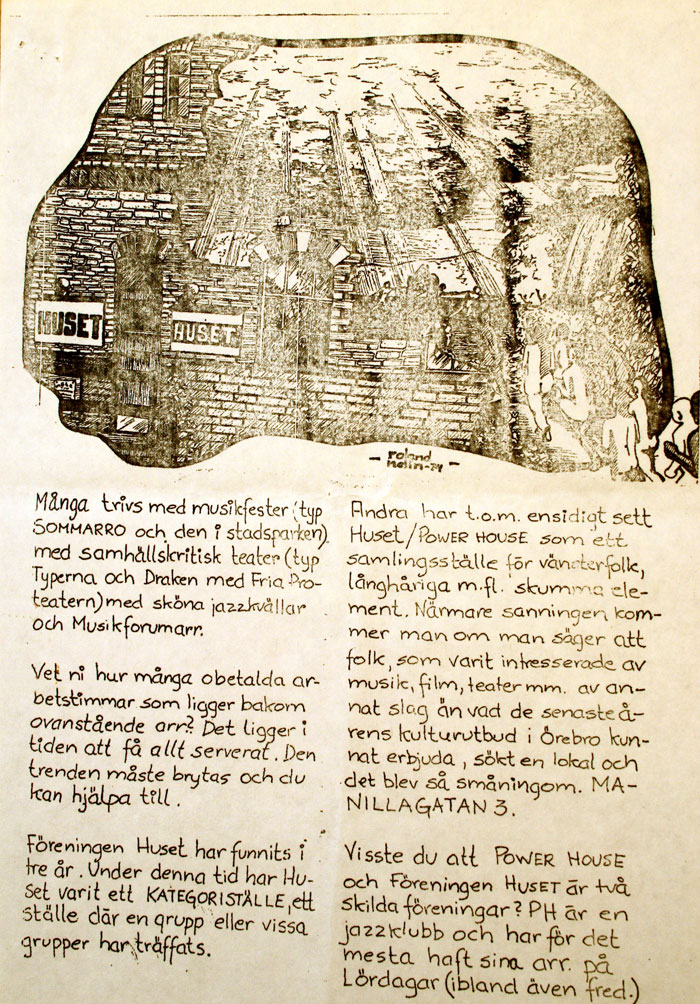 HUSET
HUSET
roland
helin-74
Många trivs med musikfester (typ
SOMMARRO och den i stadsparken)
med samhällskritisk teater (typ
Typerna och Draken med Fria Pro-
teatern) med sköna jazzkvällar
och Musikforumarr.
Vet ni hur många obetalda ar-
betstimmar som ligger bakom
ovanstående arr? Det ligger i
tiden att få allt serverat. Den
trenden måste brytas och du
kan hjälpa till.
Föreningen Huset har funnits i
tre år. Under denna tid har Hu-
set varit ett KATEGORISTÄLLE, ett
ställe där en grupp eller vissa
grupper har träffats.
Andra har t.o.m. ensidigt sett
Huset/POWER HOUSE som ett
samlingsställe för vänsterfolk,
långhåriga m.fl. skumma ele-
ment. Närmare sanningen kom-
mer man om man säger att
folk, som varit intresserade av
musik, film, teater mm. av an-
nat slag än vad de senaste å-
rens kulturutbud i Örebro kun-
nat erbjuda, sökt en lokal och
det blev så småningom. MA-
NILLAGATAN 3.
Visste du att POWER HOUSE
och Föreningen HUSET är två
skilda föreningar? PH är en
jazzklubb och har för det
mesta haft sina arr. på
Lördagar (ibland även fred.)